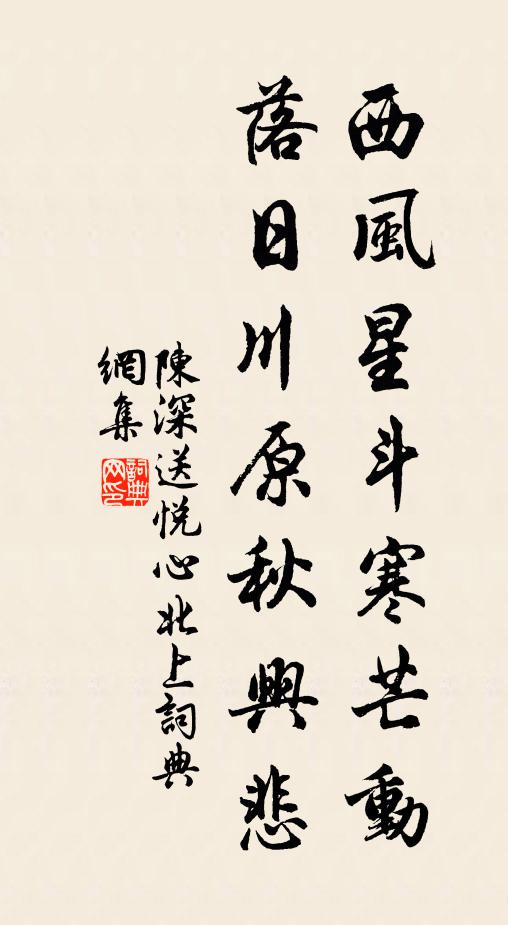 西風星斗寒芒動
落日川原秋興悲
陳深送悦心北上詞典
網集
詞典网印